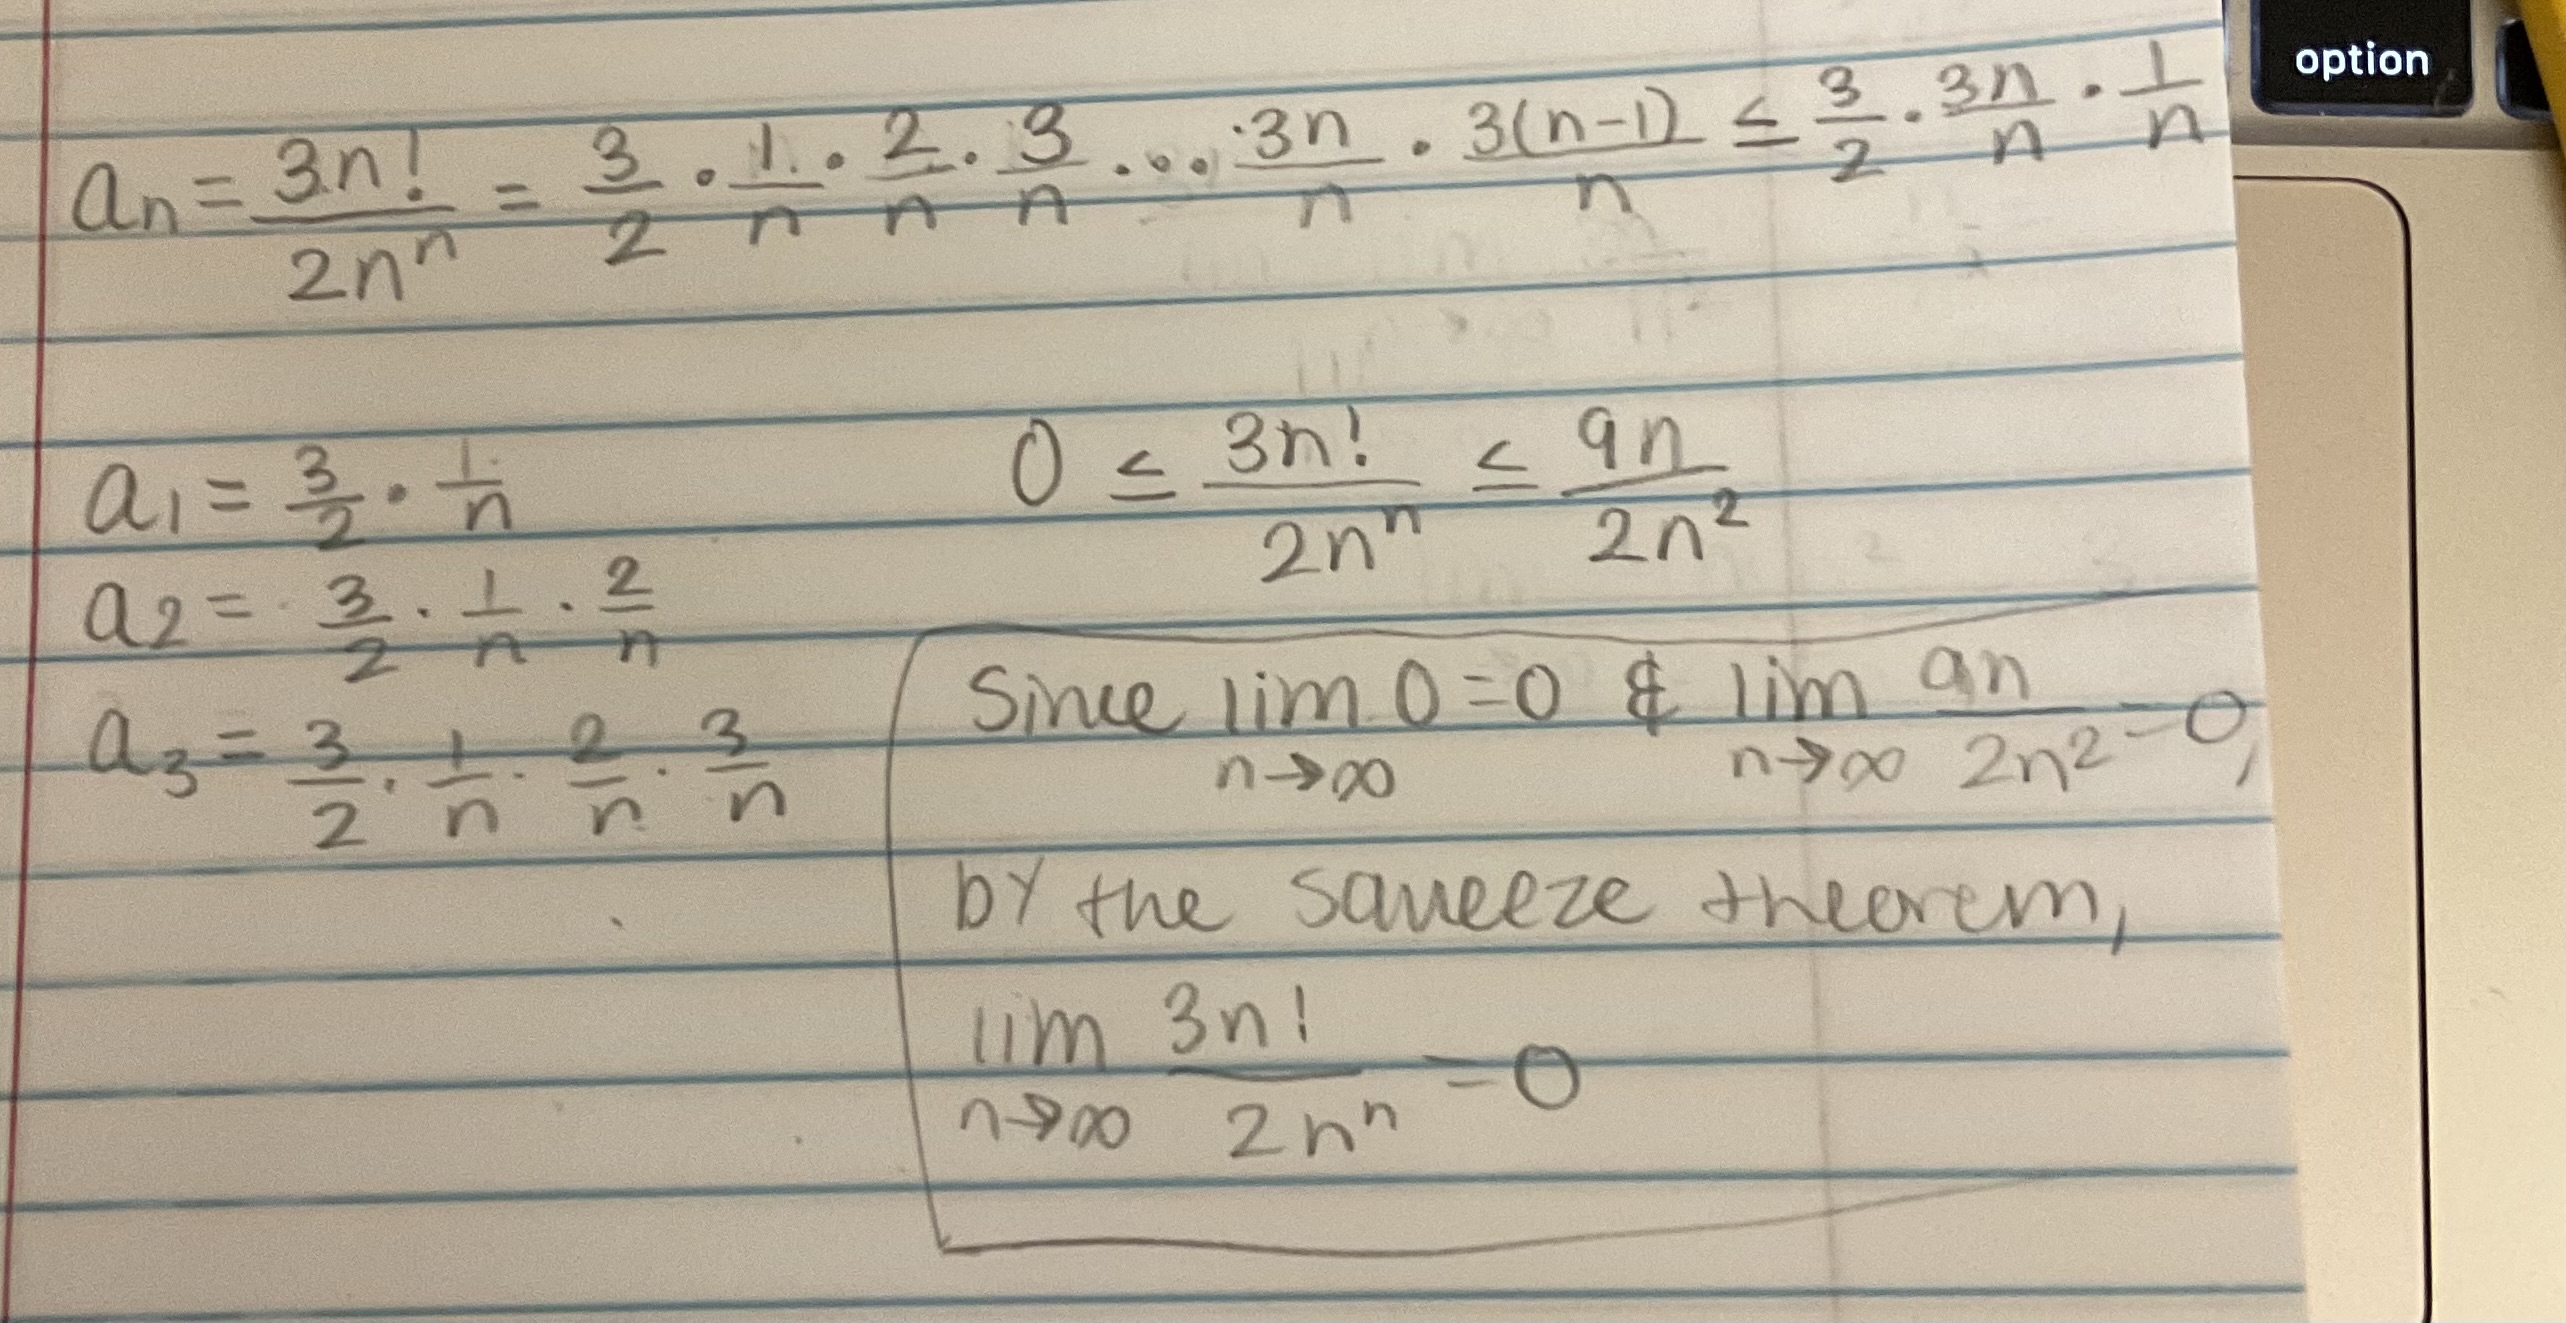 option
aₙ = 3n!/2nⁿ = 3/2 · 1/n · 2/n · 3/n · ... · 3n/n · 3(n-1)/n ≤ 3/2 · 3n/n · 1/n
a₁ = 3/2 · 1/n
0 ≤ 3n!/2nⁿ ≤ 9n/2n²
a₂ = 3/2 · 1/n · 2/n
a₃ = 3/2 · 1/n · 2/n · 3/n
Since lim n→∞ 0 = 0 & lim n→∞ 9n/2n² = 0,
by the squeeze theorem,
lim n→∞ 3n!/2nⁿ = 0